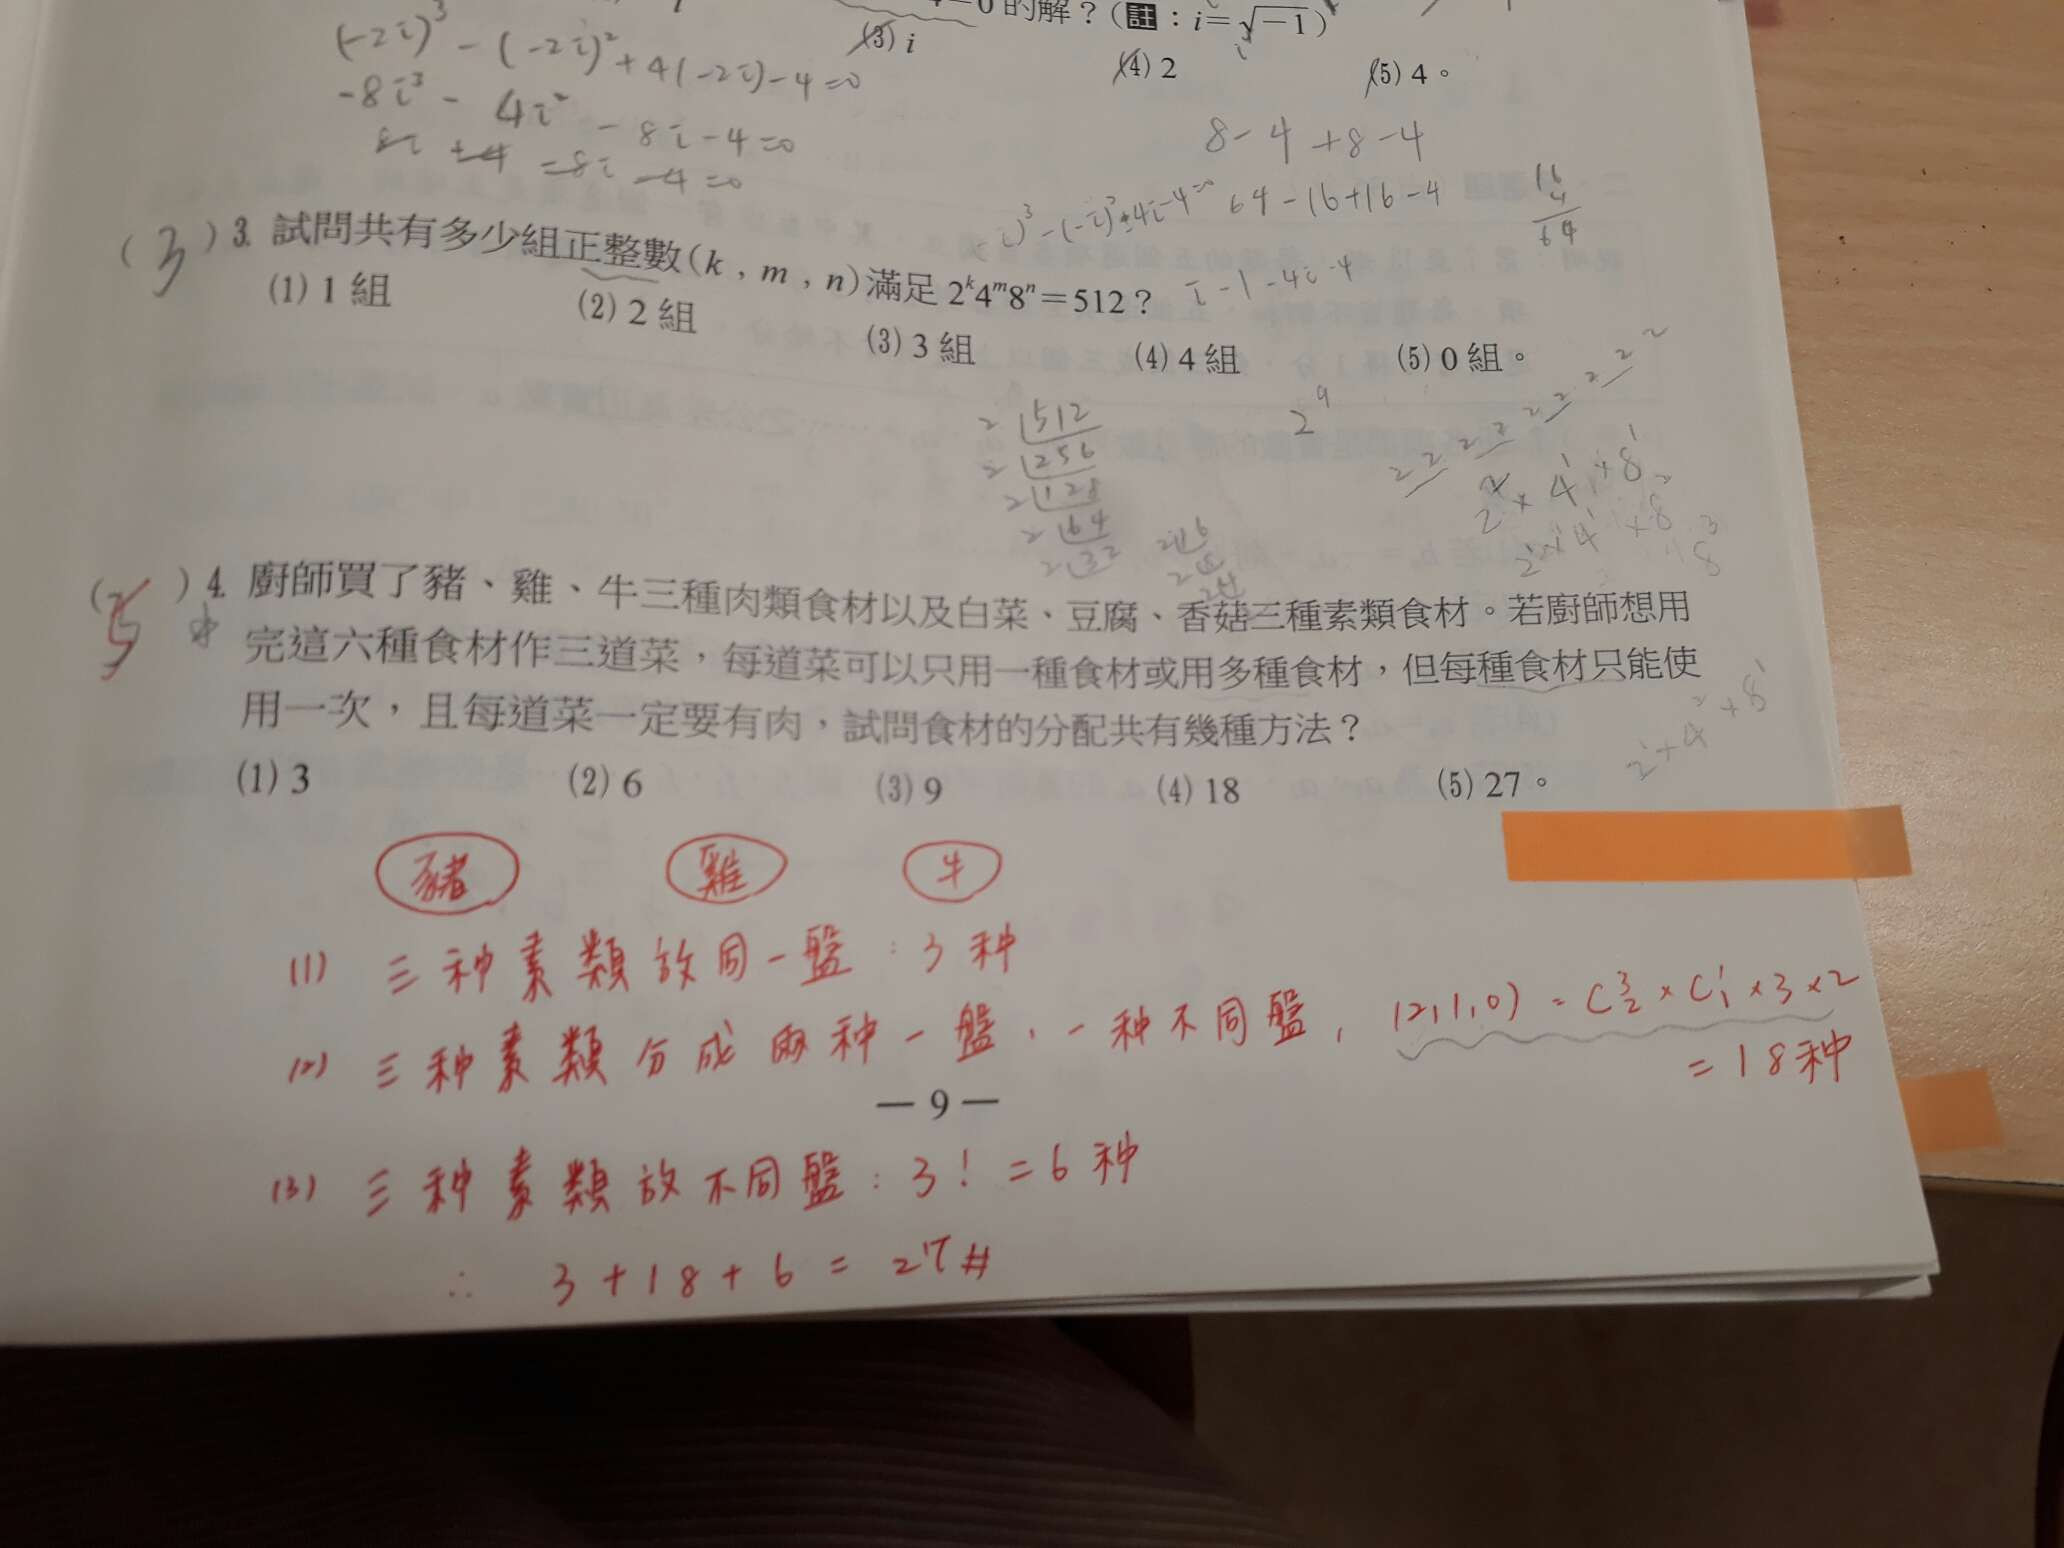 0的解？(註：i=√−1)
(3) i
(4) 2
(5) 4。
(-2i)³ - (-2i)² + 4(-2i) - 4 = 0
-8i³ - 4i² - 8i - 4 = 0
8i + 4 = 8i - 4 = 0
8 - 4 + 8 - 4
64 - 16 + 16 - 4
16
4
64
i - 1 - 4i - 4
(3) 3. 試問共有多少組正整數(k，m，n)滿足2^k4^m8^n=512？
(1) 1 組
(2) 2 組
(3) 3 組
(4) 4 組
(5) 0 組。
2 512
2 256
2 128
2 64
2 32
2 16
2 8
2 4
2⁹
(5) 4. 廚師買了豬、雞、牛三種肉類食材以及白菜、豆腐、香菇三種素類食材。若廚師想用
完這六種食材作三道菜，每道菜可以只用一種食材或用多種食材，但每種食材只能使
用一次，且每道菜一定要有肉，試問食材的分配共有幾種方法？
(1) 3
(2) 6
(3) 9
(4) 18
(5) 27。
豬 雞 牛
(1) 三种素類放同一盤：3种
(2) 三种素類分成兩种一盤，一种不同盤，(2,1,0) = C³₂ × C¹₁ × 3 × 2
= 18种
— 9 —
(3) 三种素類放不同盤：3! = 6种
∴ 3 + 18 + 6 = 27#